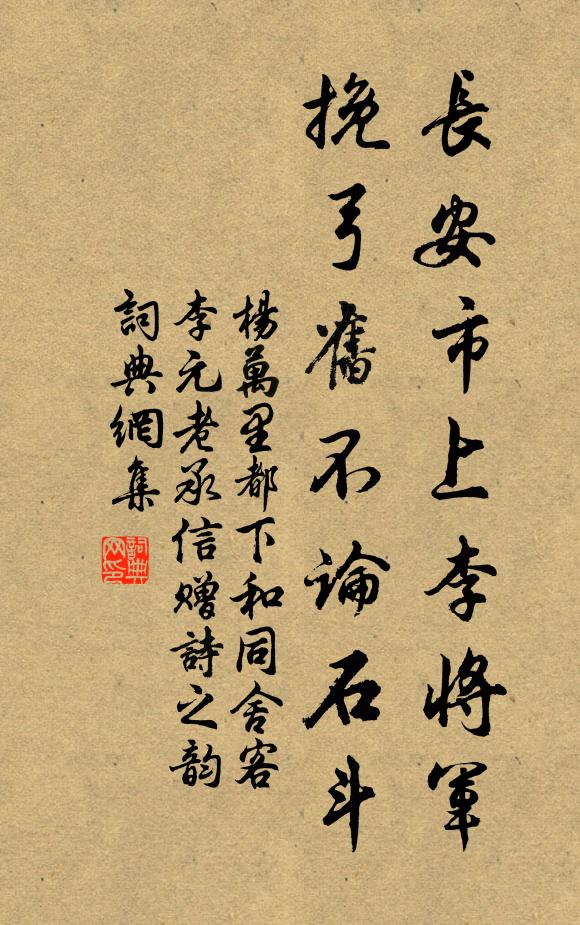 長安市上李將軍
挽弓舊不論石斗
楊萬里都下和同舍客
李元老承信贈詩之韵
詞典網集
詞典网印